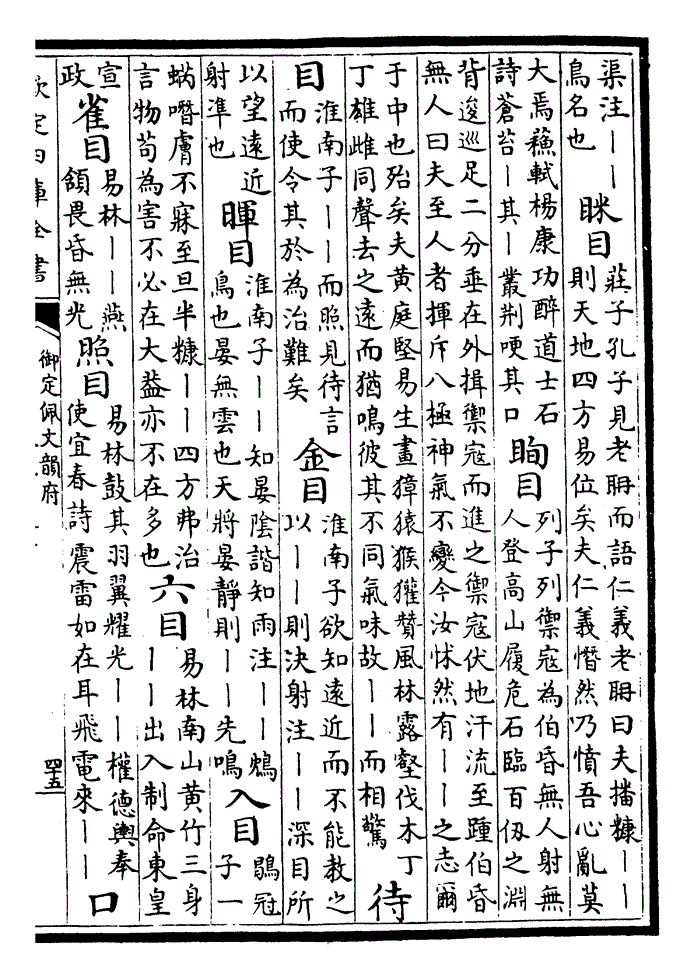 渠注丨丨
鳥名也
眯目
莊子孔子見老聃而語仁義老聃曰夫播糠丨丨
則天地四方易位矣夫仁義憯然乃憤吾心亂莫
大焉蘓軾楊康功醉道士石
詩蒼苔丨其丨叢荆哽其口
眴目
列子列禦寇為伯昏無人射無
人登高山履危石臨百仭之淵
背逡巡足二分垂在外揖禦寇而進之禦寇伏地汗流至踵伯昏
無人曰夫至人者揮斥八極神氣不變今汝怵然有丨丨之志爾
于中也殆矣夫黄庭堅易生畫獐猿猴獾贊風林露壑伐木丁
丁雄雌同聲去之逺而猶鳴彼其不同氣味故丨丨而相驚
待
目
淮南子丨丨而照見待言
而使令其於為治難矣
金目
淮南子欲知逺近而不能教之
以丨丨則決射注丨丨深目所
以望逺近
射凖也
暉目
淮南子丨丨知晏隂諧知雨注丨丨鴆
鳥也晏無雲也天將晏靜則丨丨先鳴
入目
鶡冠
子一
蚋噆膚不寐至旦半糠丨丨四方弗治
言物苟為害不必在大益亦不在多也
六目
易林南山黄竹三身
丨丨出入制命東皇
宣
政
雀目
易林丨丨燕
頷畏昏無光
照目
易林鼓其羽翼耀光丨丨權德輿奉
使宜春詩震雷如在耳飛電來丨丨
口
欽定四庫全書
御定佩文韻府
四十五